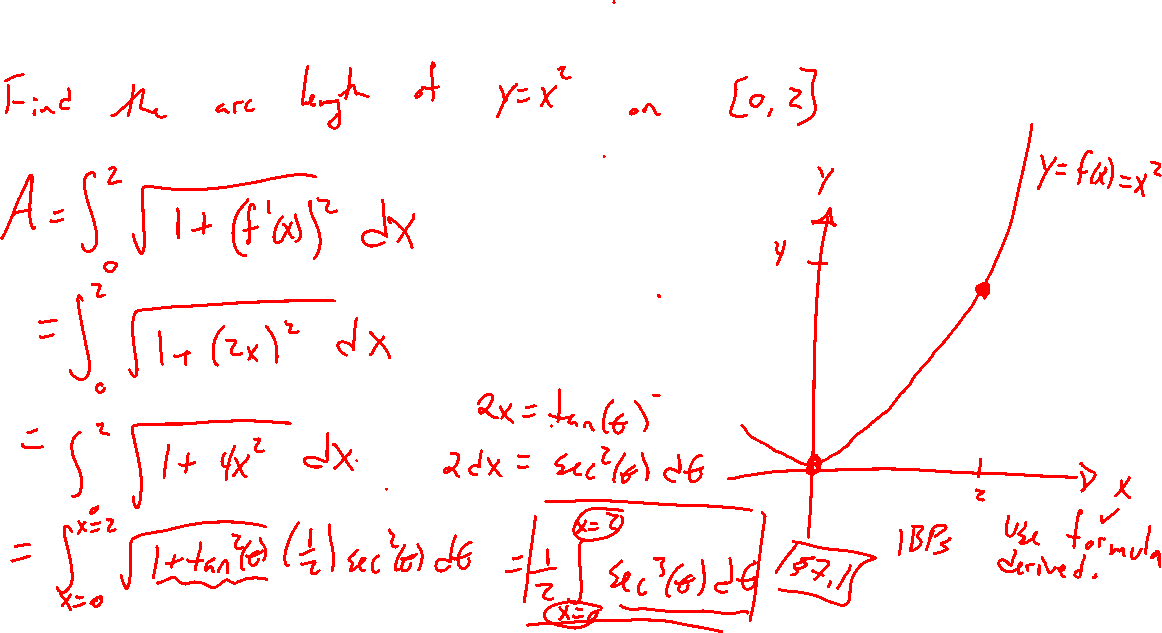 Find the arc length of y=x² on [0, 2]
A = ∫₀² √(1 + (f'(x))²) dx
= ∫₀² √(1 + (2x)²) dx
= ∫₀² √(1 + 4x²) dx
2x = tan(θ)
2dx = sec²(θ) dθ
= ∫_{x=0}^{x=2} √(1+tan²(θ)) (1/2) sec²(θ) dθ = 1/2 ∫_{x=0}^{x=2} sec³(θ) dθ
§7.1
IBPs
use formula
derived.
y
y = f(x) = x²
4
2
x